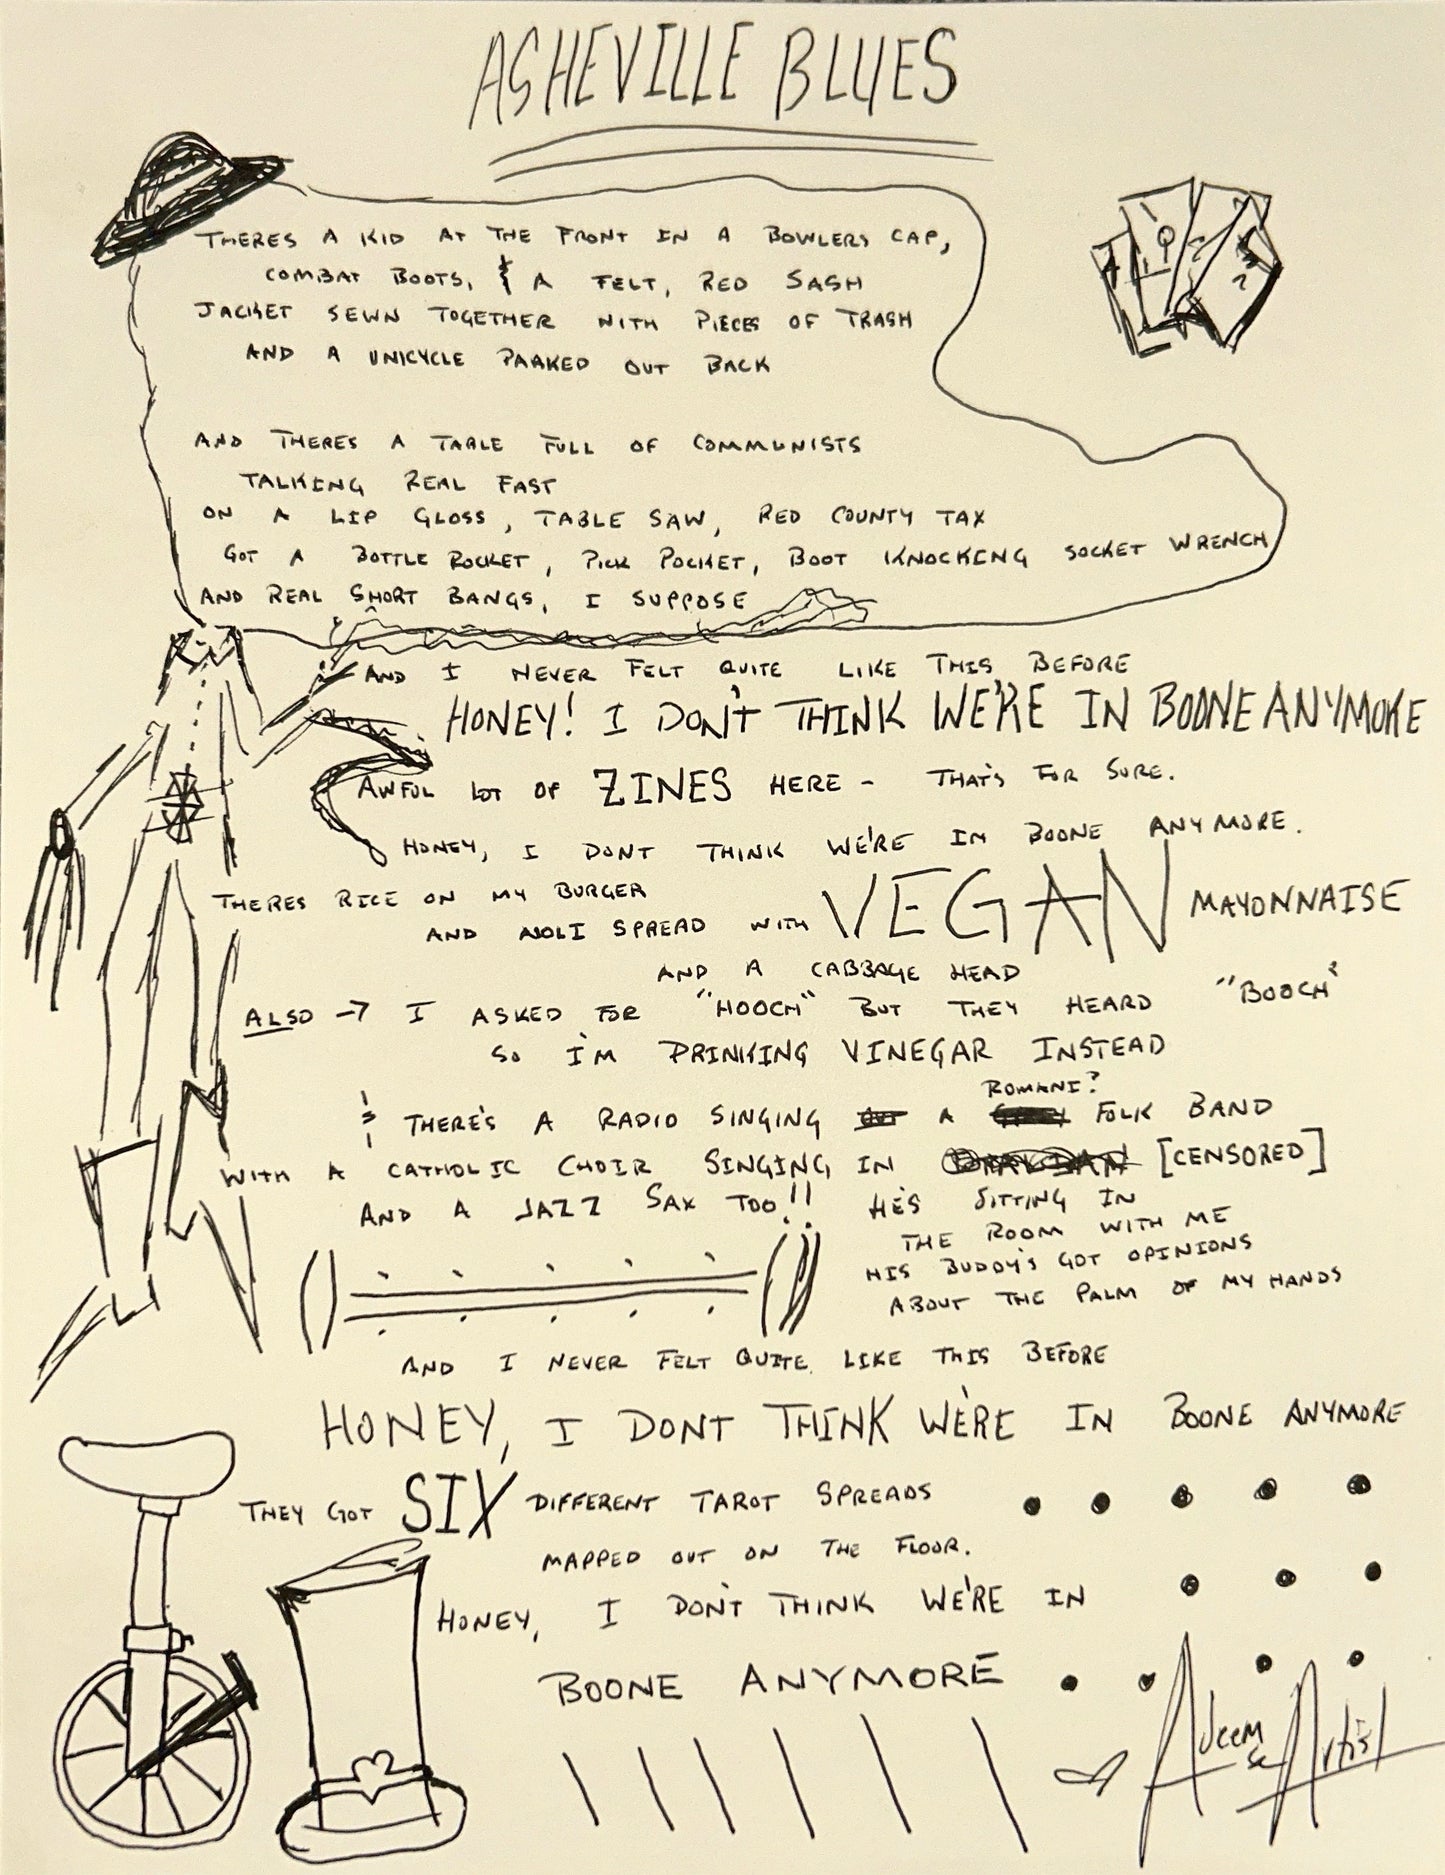 ASHEVILLE BLUES
THERES A KID AT THE FRONT IN A BOWLERS CAP,
COMBAT BOOTS, & A FELT, RED SASH
JACKET SEWN TOGETHER WITH PIECES OF TRASH
AND A UNICYCLE PARKED OUT BACK
AND THERES A TABLE FULL OF COMMUNISTS
TALKING REAL FAST
ON A LIP GLOSS, TABLE SAW, RED COUNTY TAX
GOT A BOTTLE ROCKET, PICK POCKET, BOOT KNOCKING SOCKET WRENCH
AND REAL SHORT BANGS, I SUPPOSE
AND I NEVER FELT QUITE LIKE THIS BEFORE
HONEY! I DON'T THINK WE'RE IN BOONE ANYMORE
AWFUL LOT OF ZINES HERE - THAT'S FOR SURE.
HONEY, I DONT THINK WE'RE IN BOONE ANYMORE.
THERES RICE ON MY BURGER
AND AIOLI SPREAD WITH VEGAN MAYONNAISE
AND A CABBAGE HEAD
ALSO → I ASKED FOR "HOOCH" BUT THEY HEARD "BOOCH"
SO I'M DRINKING VINEGAR INSTEAD
ROMANI?
& THERE'S A RADIO SINGING A FOLK BAND
WITH A CATHOLIC CHOIR SINGING IN [CENSORED]
AND A JAZZ SAX TOO!! HE'S SITTING IN
THE ROOM WITH ME
HIS BUDDY'S GOT OPINIONS
ABOUT THE PALM OF MY HANDS
AND I NEVER FELT QUITE LIKE THIS BEFORE
HONEY, I DONT THINK WE'RE IN BOONE ANYMORE
THEY GOT SIX DIFFERENT TAROT SPREADS
MAPPED OUT ON THE FLOOR.
HONEY, I DON'T THINK WE'RE IN
BOONE ANYMORE
Adeem
the Artist